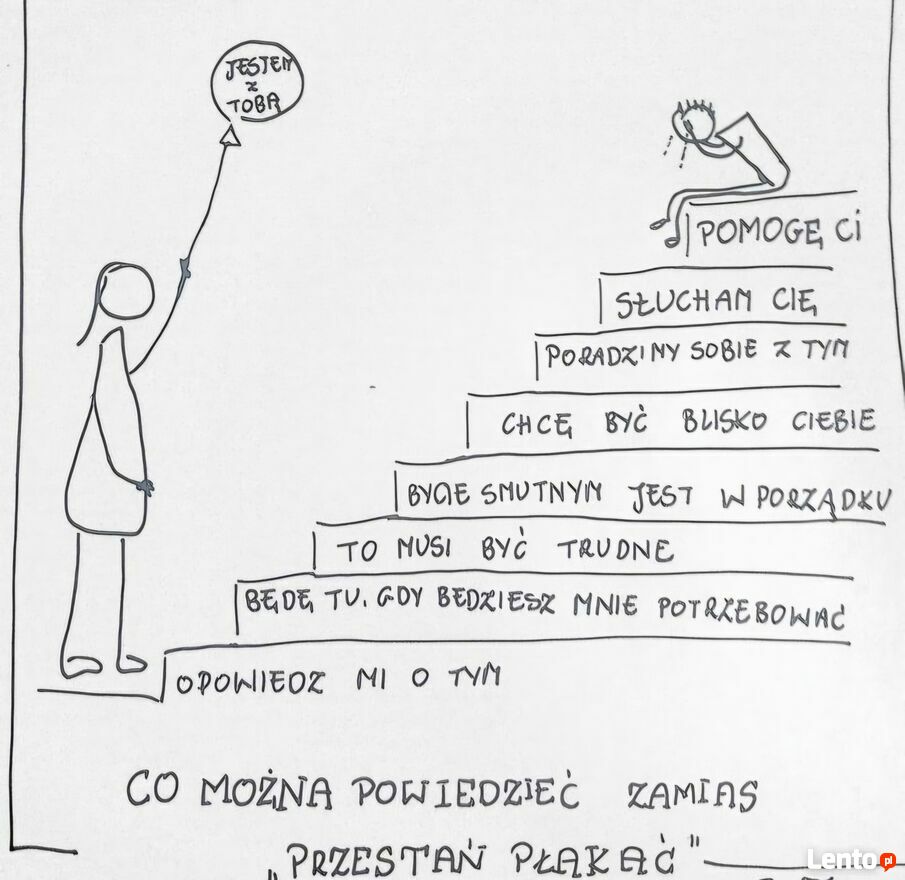 JESTEM
Z
TOBĄ
POMOGĘ CI
SŁUCHAM CIĘ
PORADZIMY SOBIE Z TYM
CHCĘ BYĆ BLISKO CIEBIE
BYCIE SMUTNYM JEST W PORZĄDKU
TO MUSI BYĆ TRUDNE
BĘDĘ TU, GDY BĘDZIESZ MNIE POTRZEBOWAĆ
OPOWIEDZ MI O TYM
CO MOŻNA POWIEDZIEĆ ZAMIAS
„PRZESTAŃ PŁAKAĆ"
Lento.pl